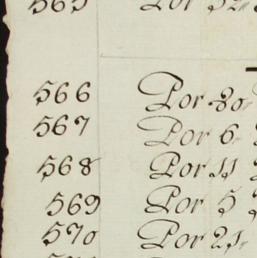 565 Por 32
566 Por 80
567 Por 6
568 Por 11
569 Por 5
570 Por 21